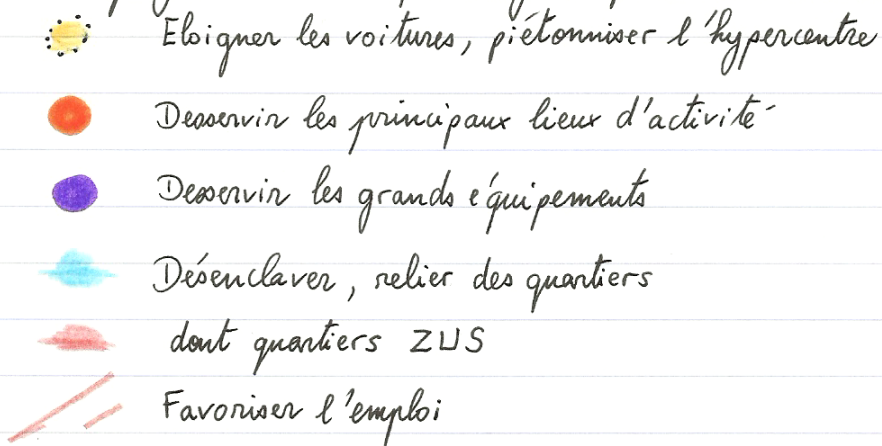 Eloigner les voitures, piétonniser l'hypercentre
Desservir les principaux lieux d'activité
Desservir les grands équipements
Désenclaver, relier des quartiers
dont quartiers ZUS
Favoriser l'emploi